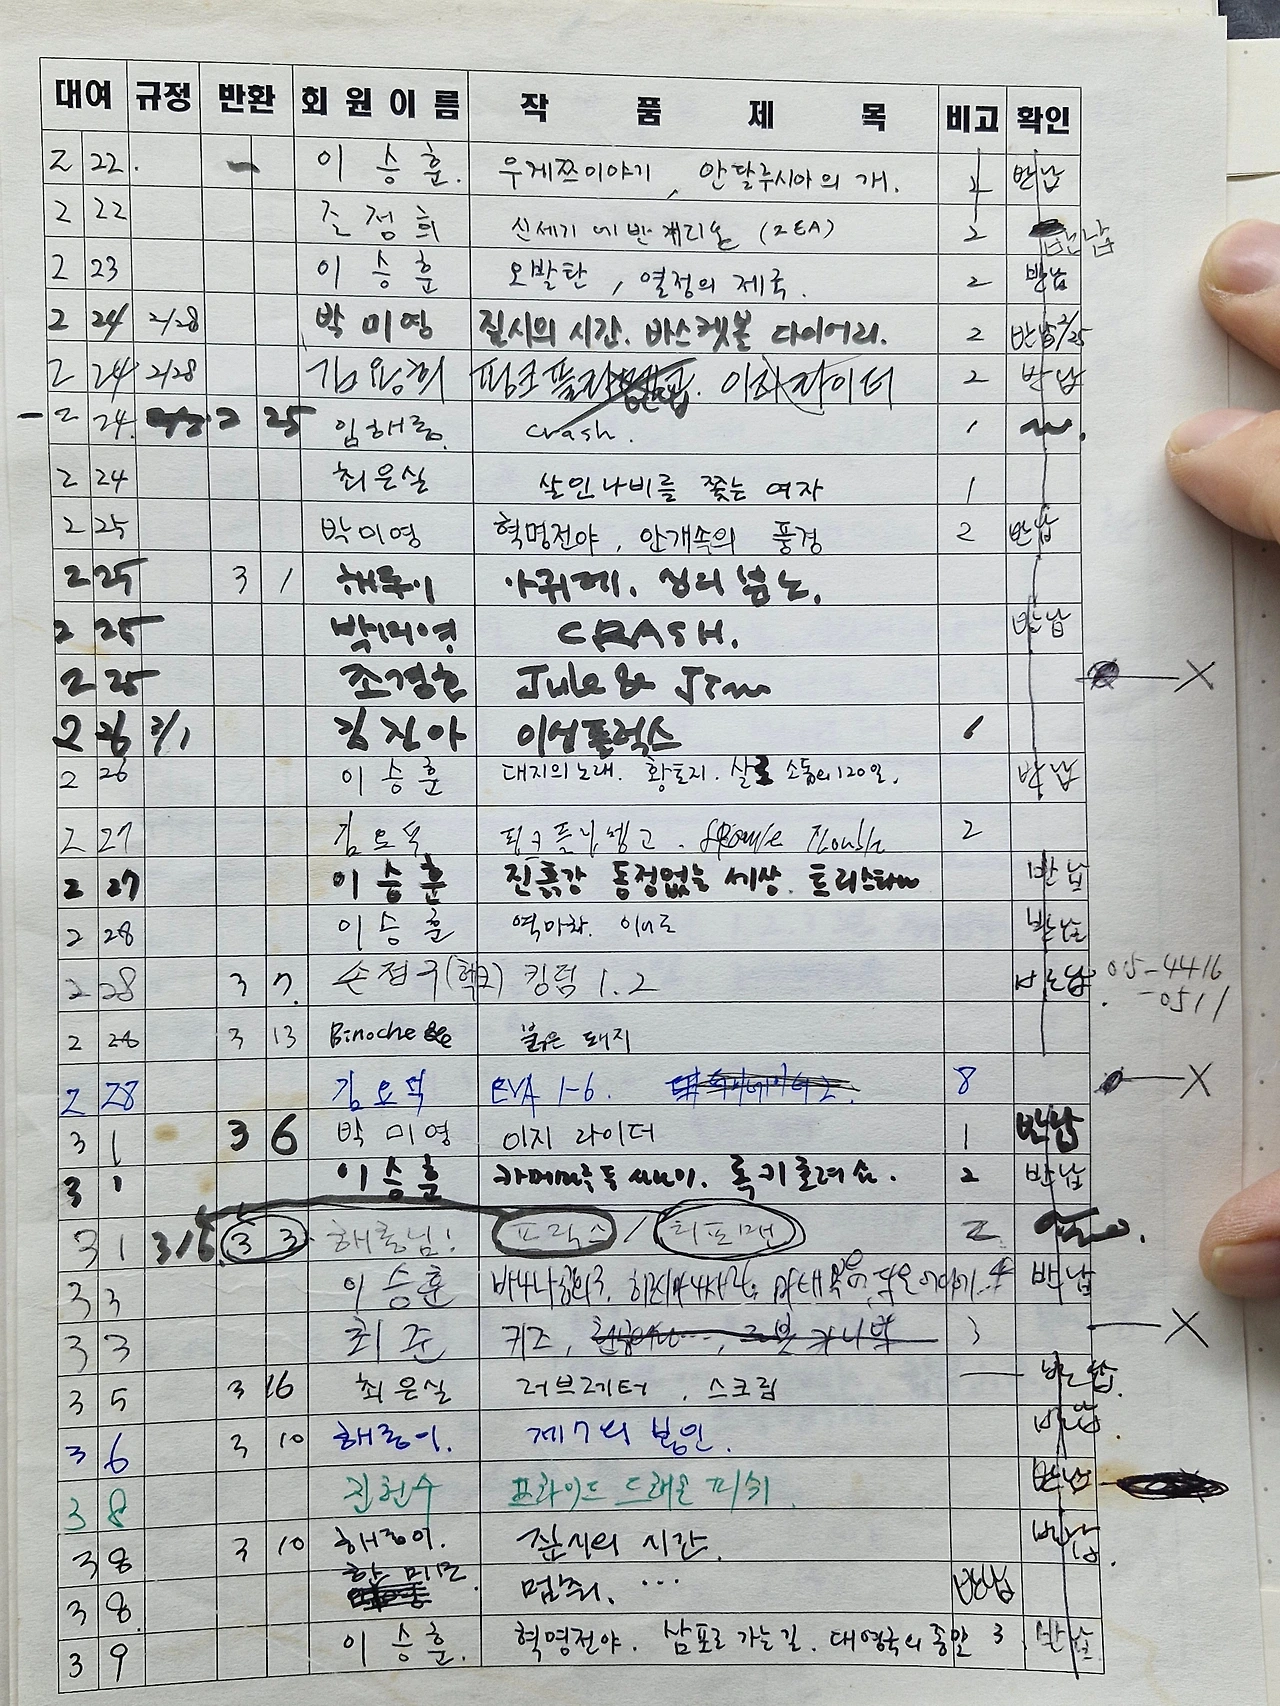 대여 규정 반환 회원이름 작품제목 비고 확인
2 22. 이승훈. 우게쯔이야기, 안달루시아의 개. 2 반납
2 22 조정희 신세기 에반게리온 (2EA) 2 반납
2 23 이승훈 오발탄, 열정의 제국. 2 반납
2 24 2/28 박미영 집시의 시간. 바스켓볼 다이어리. 2 반납 2/25
2 24 2/28 이지라이더 2 반납
2 24. 2 25 임해룡. crash. 1
2 24 최은실 살인나비를 쫓는 여자 1
2 25 박미영 혁명전야, 안개속의 풍경 2 반납
2 25 3 1 해룡이 아귀레.
2 25 박미영 CRASH. 반납
2 25 조경호 Jule & Jim X
2 26 3/1 김진아 이성플럭스 1
2 26 이승훈 대지의 노래. 황토지. 살로 소돔의 120일. 반납
2 27 김요덕 2
2 27 이승훈 진흙강 동정없는 세상. 트리스타나 반납
2 28 이승훈 역마차. 반납
2 28 3 7. 손정우 킹덤 1.2 반납 015-4416
-0511
2 28 3 13 Binoche 붉은 돼지
2 28 김요덕 EVA 1-6. 8 X
3 1 3 6 박미영 이지 라이더 1 반납
3 1 이승훈 록키호러쇼. 2 반납
3 1 3/5 3 3. 해룡님! 프릭스 / 리포맨 2
3 3 이승훈 반납
3 3 최준 키즈, 3 X
3 5 3 16 최은실 러브레터, 스크림 반납.
3 6 3 10 해룡이. 제7의 봉인. 반납.
3 8 진현수 프라이드 드래곤 피쉬. 반납
3 8 3 10 해룡이. 집시의 시간. 반납.
3 8. 멈춰. … 반납
3 9 이승훈. 혁명전야. 삼포로 가는 길. 대영국의 종말 3 반납